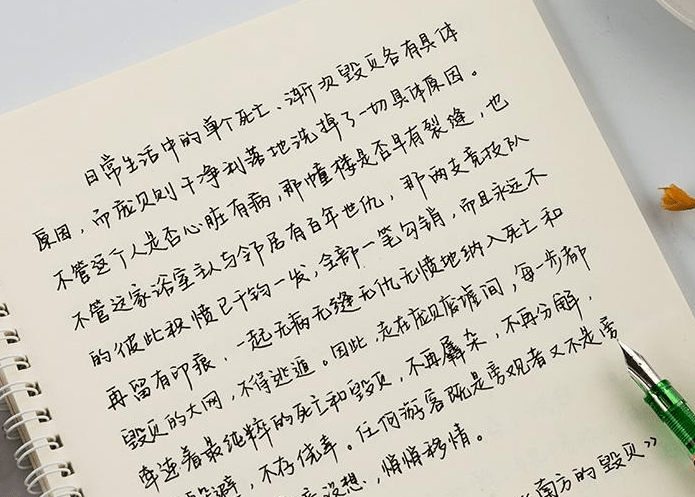 日常生活中的单个死亡、渐次毁灭各有具体
原因，而庞贝则干净利落地洗掉了一切具体原因。
不管这个人是否心脏有病，那幢楼是否早有裂缝，也
不管这家浴室主人与邻居有百年世仇，那两支竞技队
的彼此积愤已千钧一发，全部一笔勾销，而且永远不
再留有印痕，一起无病无缝无仇无愤地纳入死亡和
毁灭的大网，不得逃遁。因此，走在庞贝废墟间，每一步都
牵连着最纯粹的死亡和毁灭，不再羼杂，不再分解，
避，不存侥幸。任何游客既是旁观者又不是旁
没想，悄悄移情。
南方的毁灭》